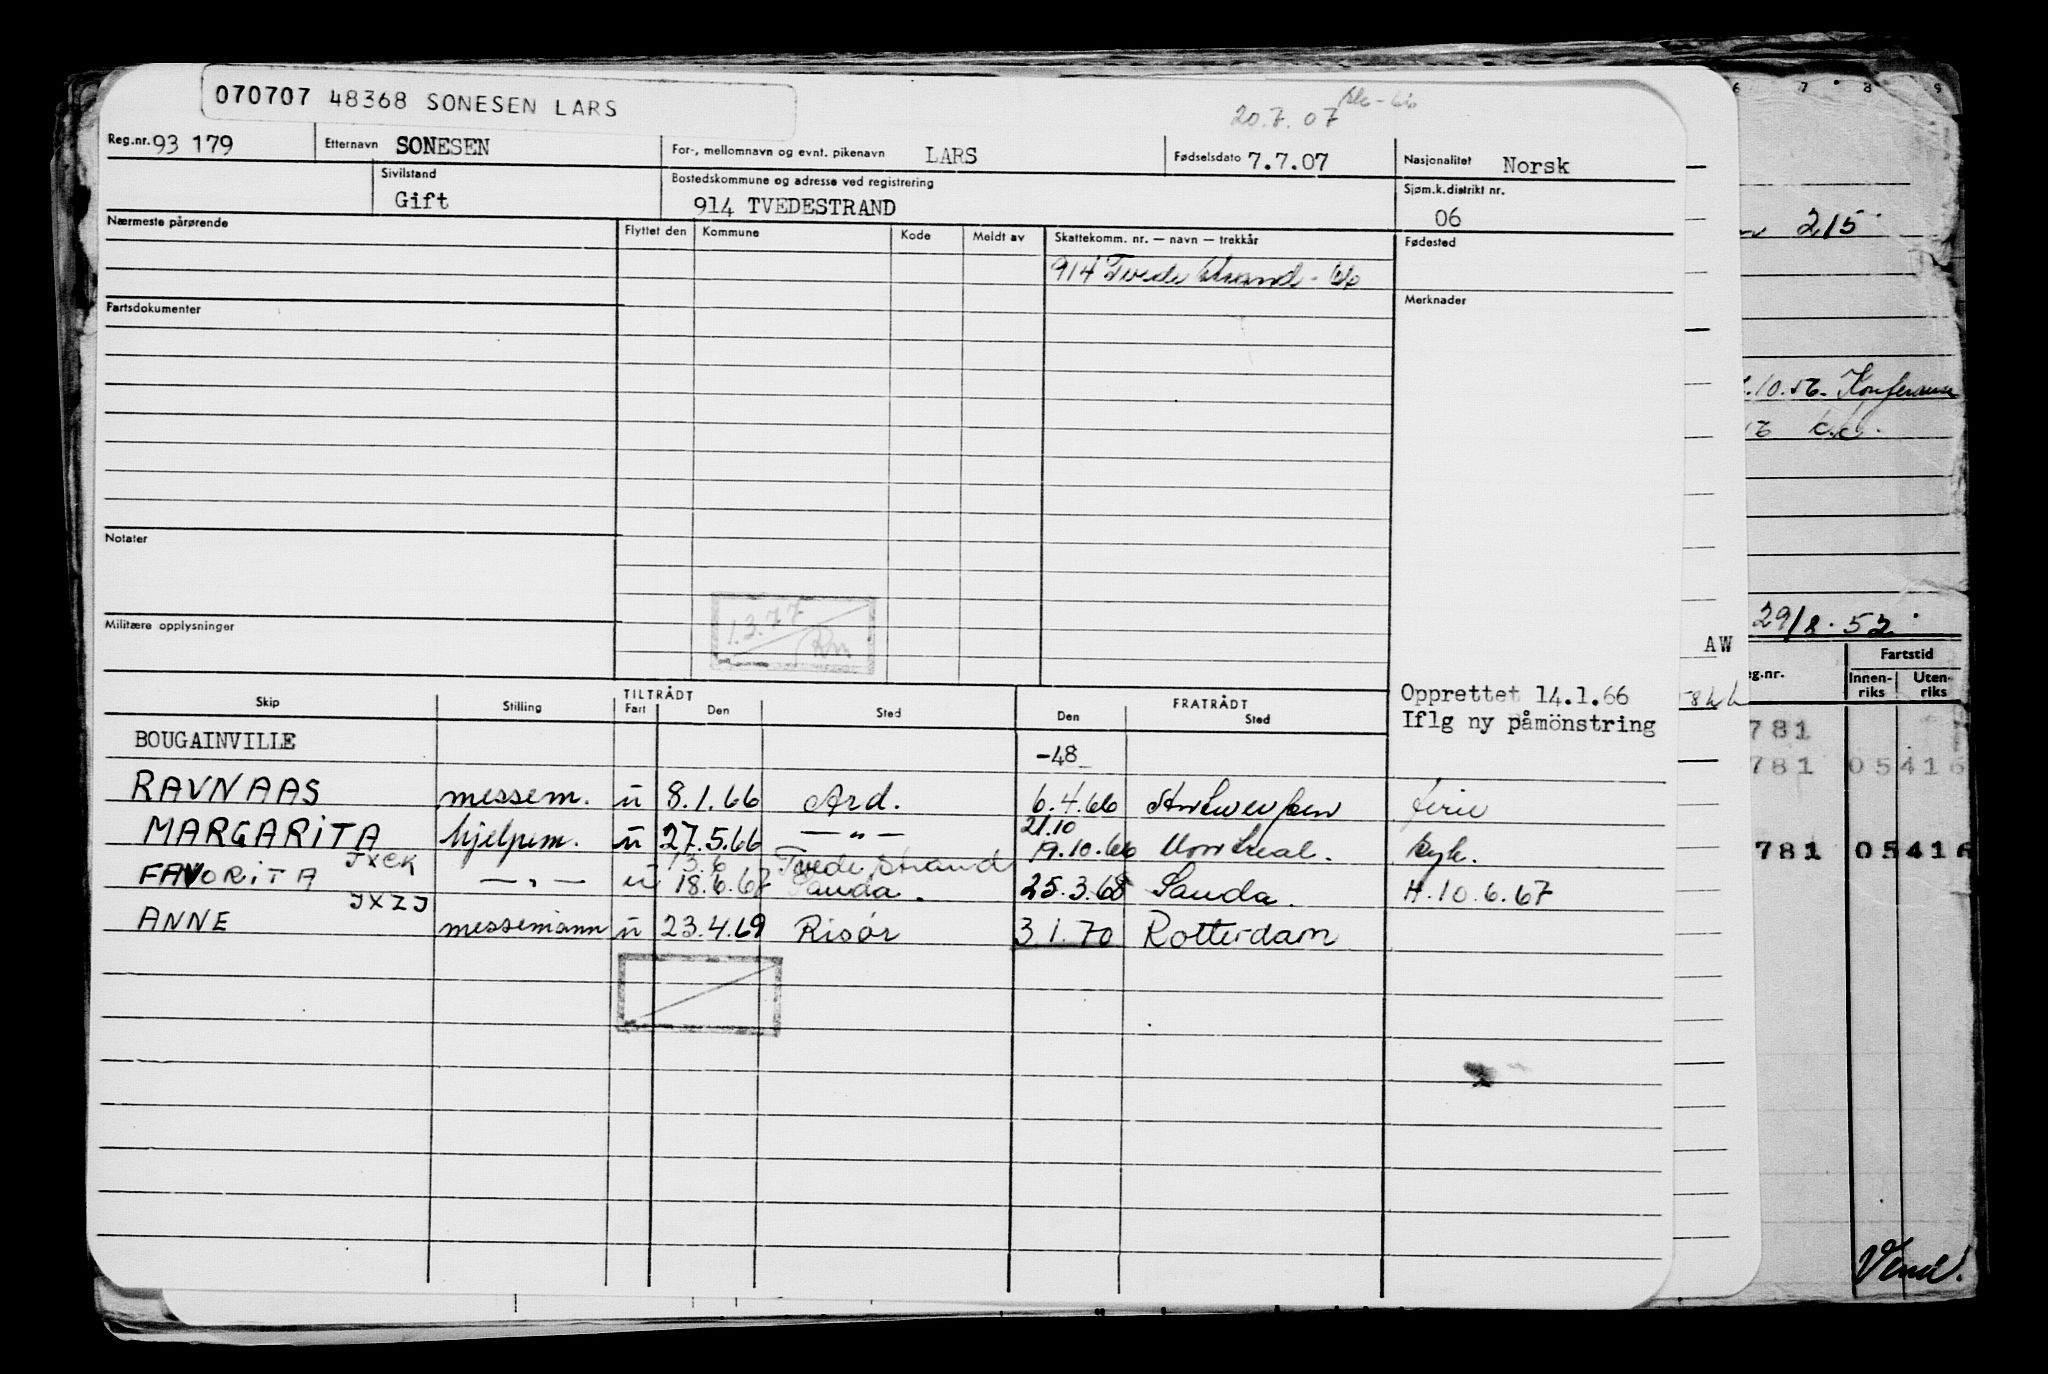 070707 48368 SONESEN LARS
20.7.07
Reg.nr. 93 179 Etternavn SONESEN For-, mellomnavn og evnt. pikenavn LARS Fødselsdato 7.7.07 Nasjonalitet Norsk
Sivilstand Gift Bostedskommune og adresse ved registrering 914 TVEDESTRAND Sjøm.k.distrikt nr. 06
Nærmeste pårørende Flyttet den Kommune Kode Meldt av Skattekomm. nr. — navn — trekkår Fødested
914 Tvedestrand - 66
Fartsdokumenter Merknader
Notater
1.3.77
Militære opplysninger
Opprettet 14.1.66
Iflg ny påmönstring
TILTRÅDT FRATRÅDT
Skip Stilling Fart Den Sted Den Sted
BOUGAINVILLE -48
RAVNAAS messem. u 8.1.66 Ard. 6.4.66 Antwerpen ferie
21.10
MARGARITA hjelpem. u 27.5.66 —"— 19.10.66 Montreal. syk.
JXCK 13.6 Tvedestrand
FAVORITA —"— u 18.6.67 Sauda. 25.3.68 Sauda. H.10.6.67
JXZJ
ANNE messemann u 23.4.69 Risör 3.1.70 Rotterdam
6 7 8 9
215
10.56. Konferansen
29/8.52
AW
Fartstid
eg.nr. Innen-riks Uten-riks
781
781 05416
781 05416
Vend!